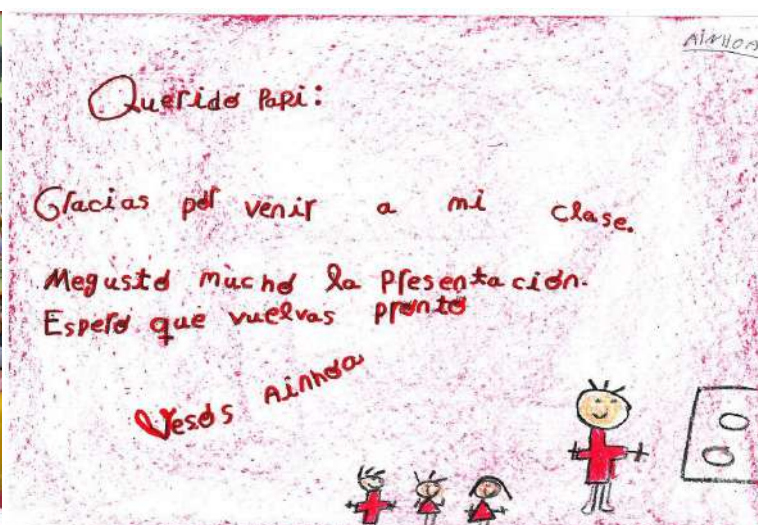 AINHOA
Querido Papi:
Gracias por venir a mi clase.
Megusto mucho la Presentación.
Espero que vuelvas pronto
Vesos Ainhoa